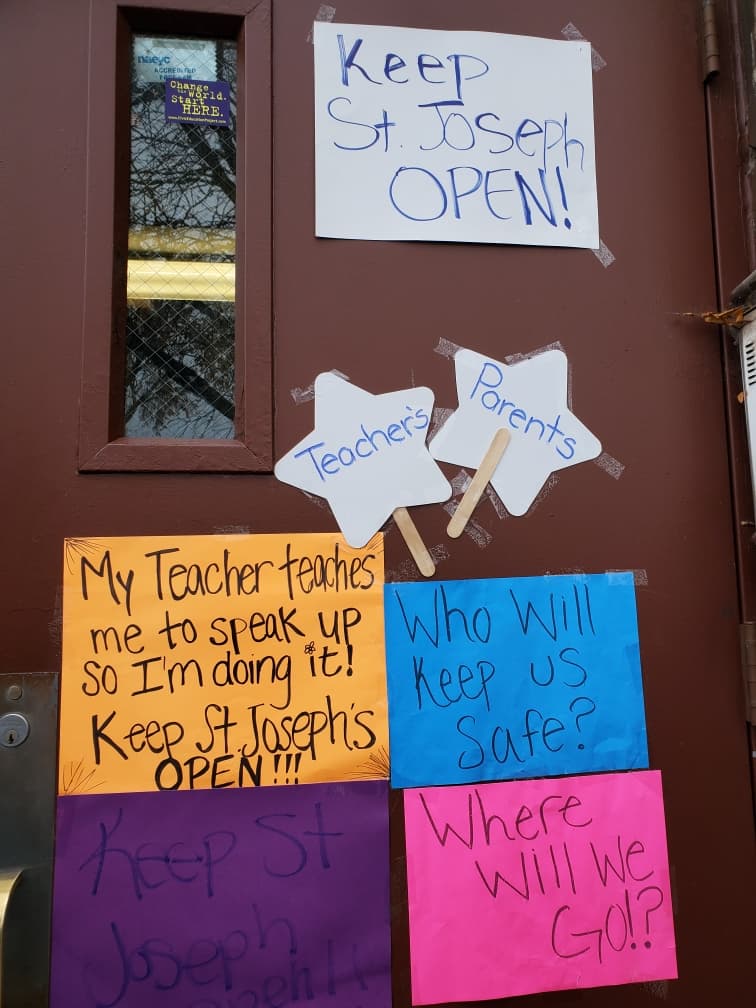 naeyc
ACCREDITED
Change
the World.
Start
HERE.
Keep
St. Joseph
OPEN!
Teacher's
Parents
My Teacher teaches
me to speak up
so I'm doing it!
Keep St. Joseph's
OPEN!!!
Who Will
Keep us
Safe?
Where
Will We
Go!?
Keep St
Joseph
Open!!